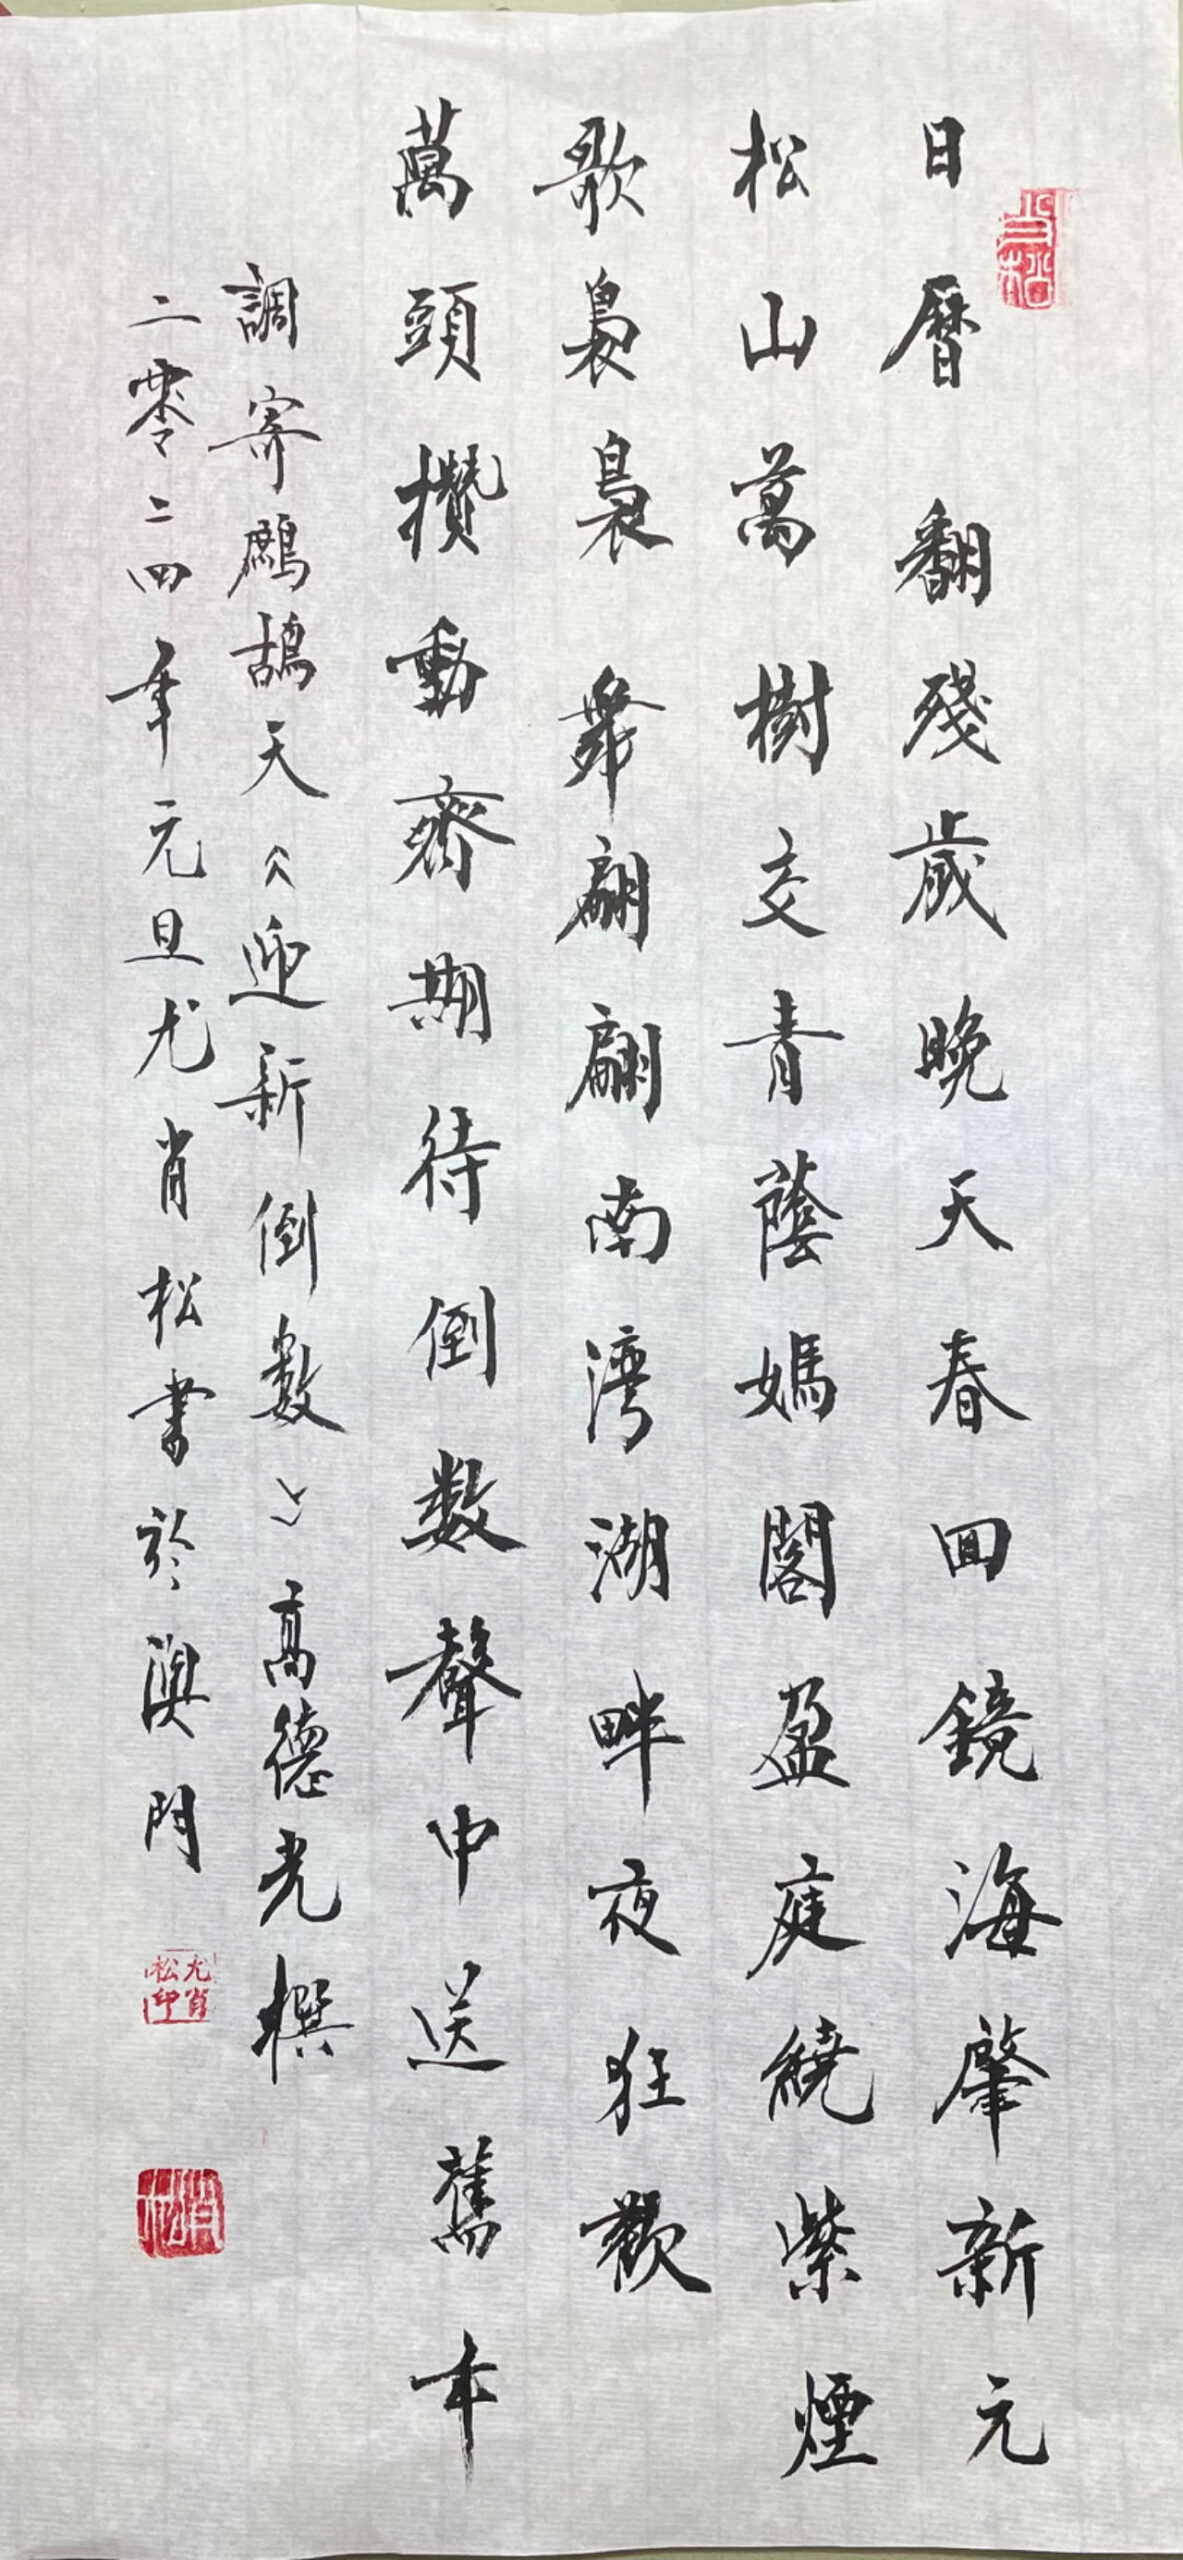 日曆翻殘歲晚天春回鏡海肇新元
松山萬樹交青蔭媽閣盈庭繞紫煙
歌裊裊舞翩翩南湾湖畔夜狂歡
萬頭攢動齊期待倒数聲中送舊年
調寄鷓鴣天《迎新倒數》高德光撰
二零二四年元旦尤肖松書於澳門
肖松
尤肖松印
肖松